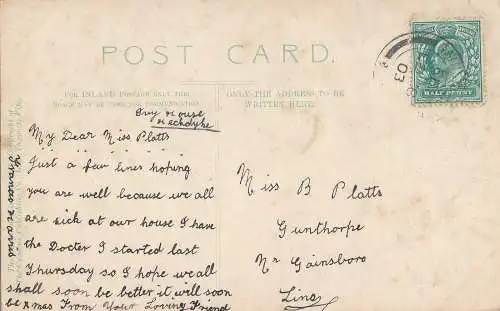 POST CARD.
FOR INLAND POSTAGE ONLY THE
SPACE MAY BE USED FOR COMMUNICATION
ONLY THE ADDRESS TO BE
WRITTEN HERE
HALF PENNY
03
Ivy House
Heckdyke
My Dear Miss Platts
Just a few lines hoping
you are well because we all
are sick at our house I have
the Docter I started last
Thursday so I hope we all
shall soon be better it will soon
be Xmas From Your Loving Friend
Frances Harris
Miss B Platts
Gunthorpe
Nr Gainsboro
Lincs